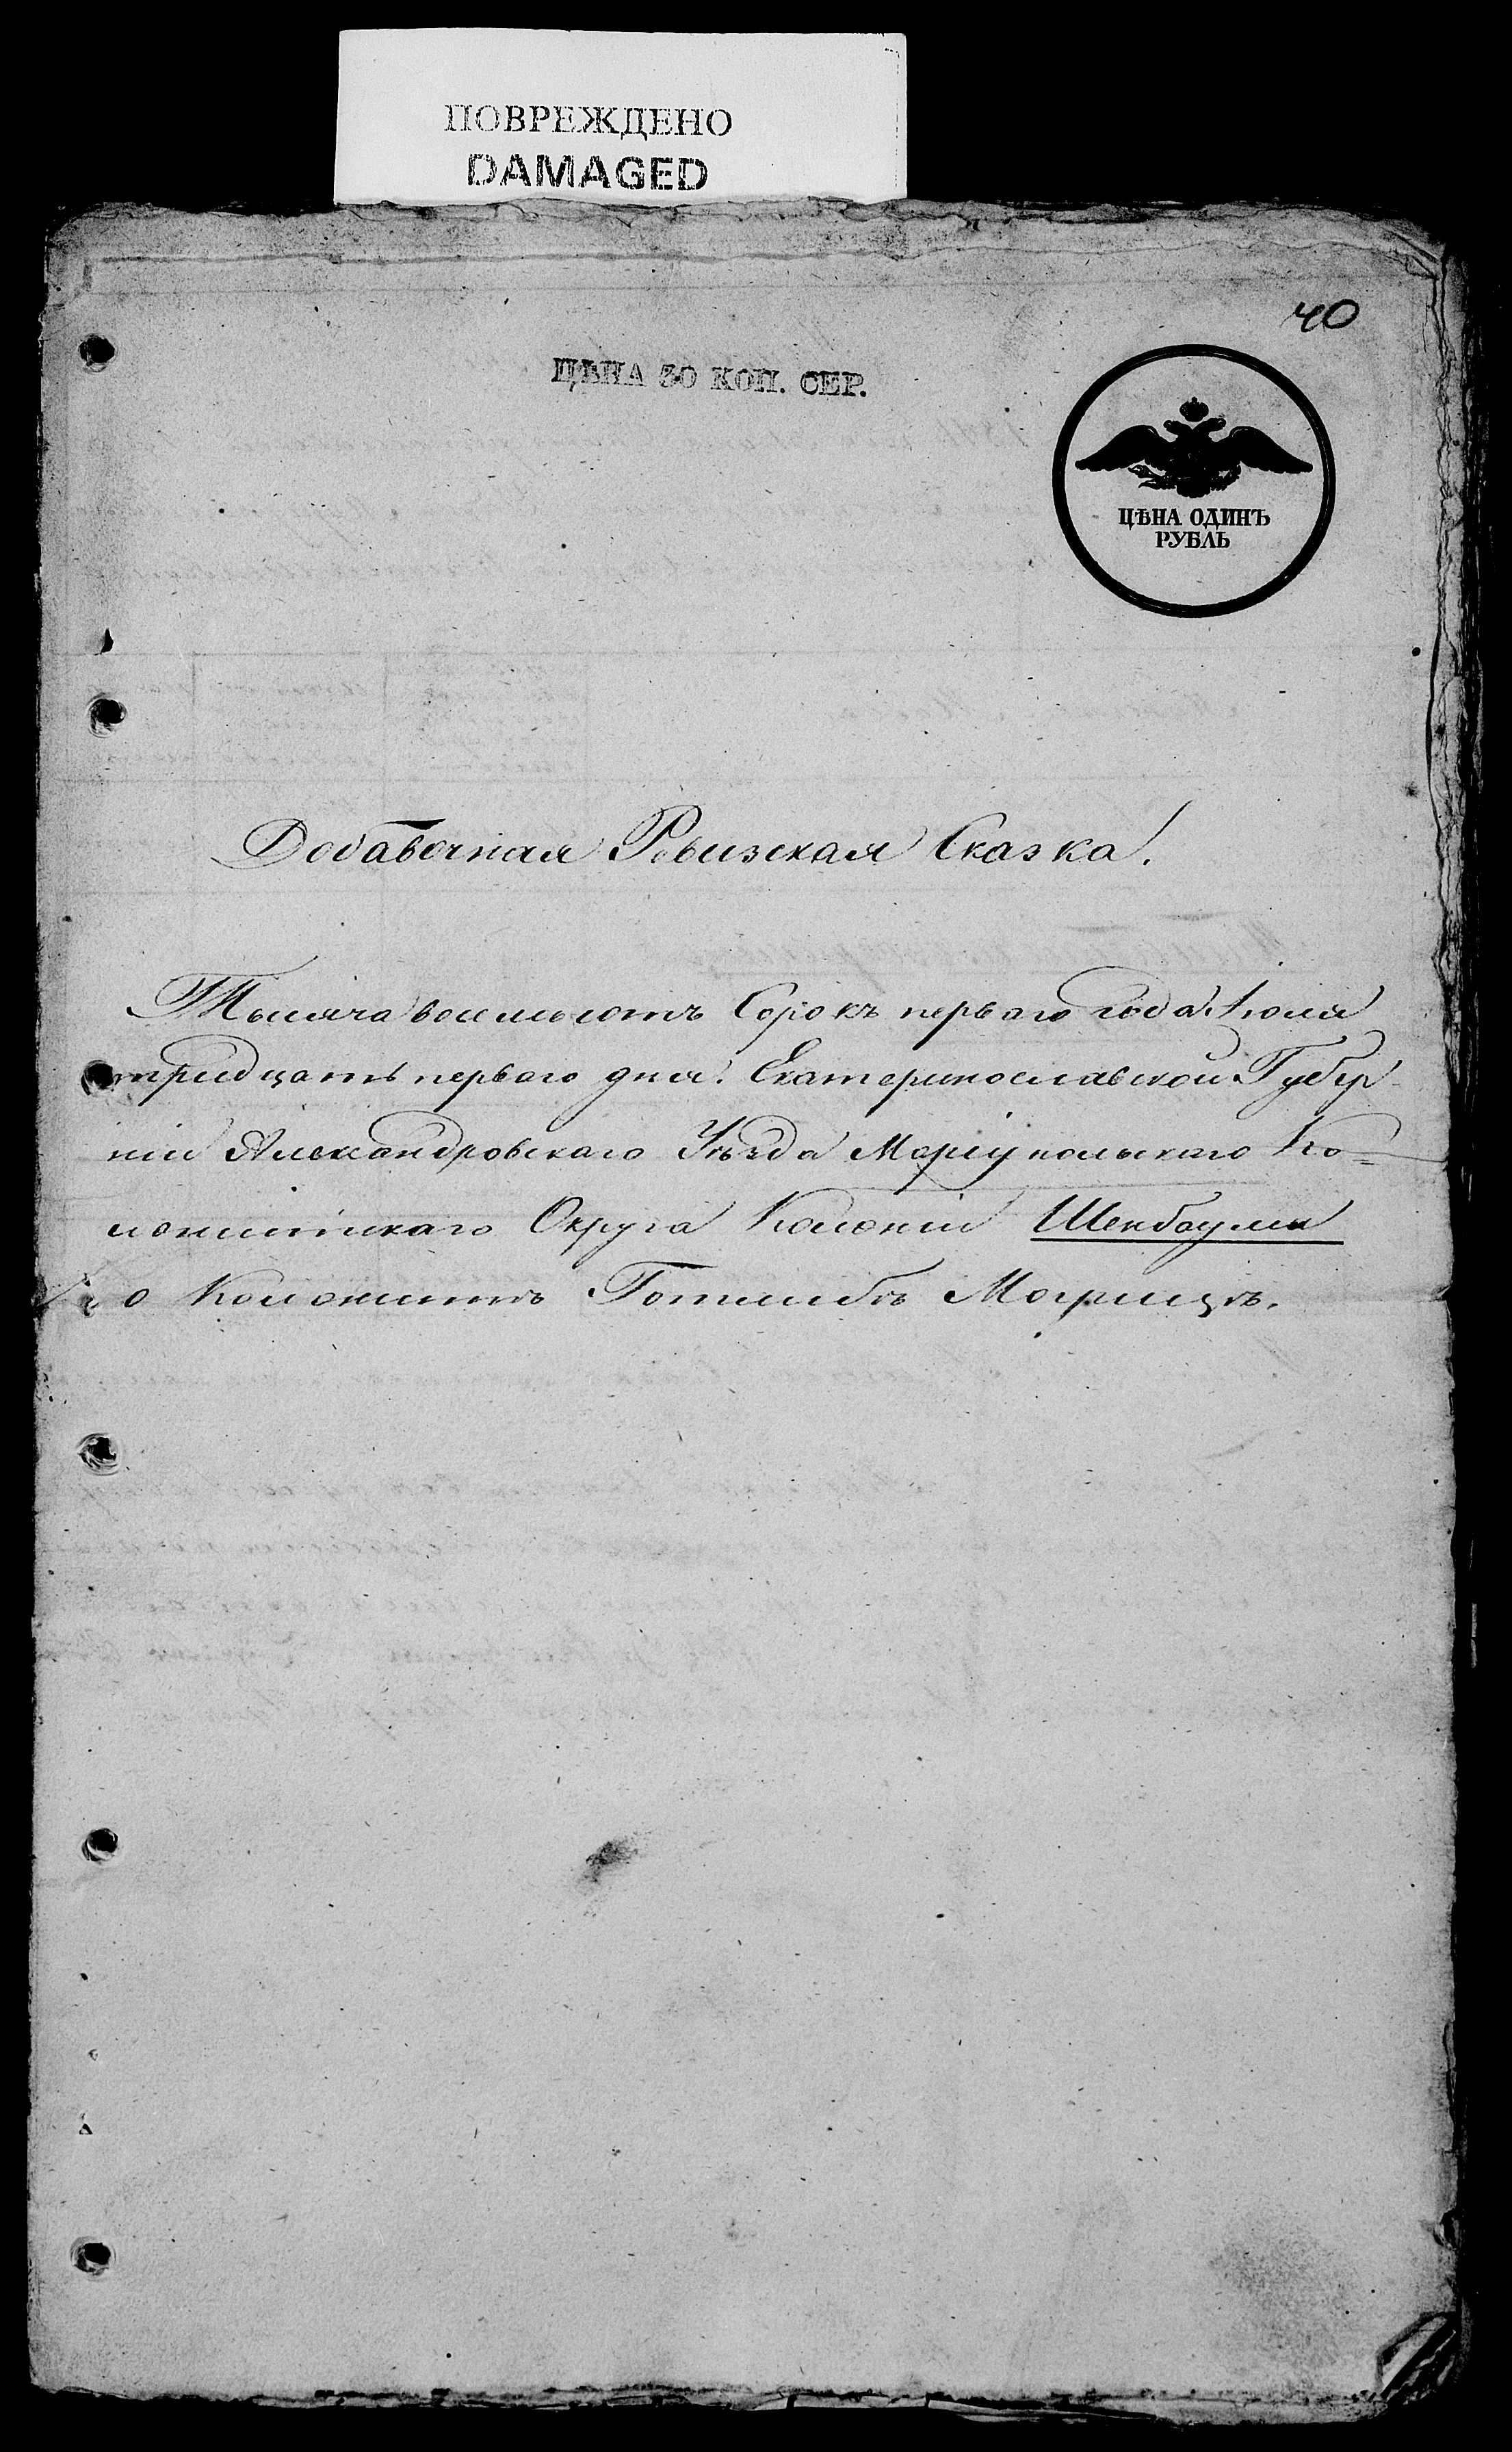 ПОВРЕЖДЕНО
DAMAGED
40
ЦѢНА 30 КОП. СЕР.
ЦѢНА ОДИНЪ
РУБЛЬ
Добавочная Ревизская Сказка.
Тысяча восемьсотъ Сорокъ перваго года Іюля
тридцать перваго дня. Екатеринославской Губер-
ніи Александровскаго Уѣзда Маріупольскаго Ко=
лонистскаго Округа Колоніи Шенбаумъ
о Колонистѣ Готлибѣ Морицѣ.